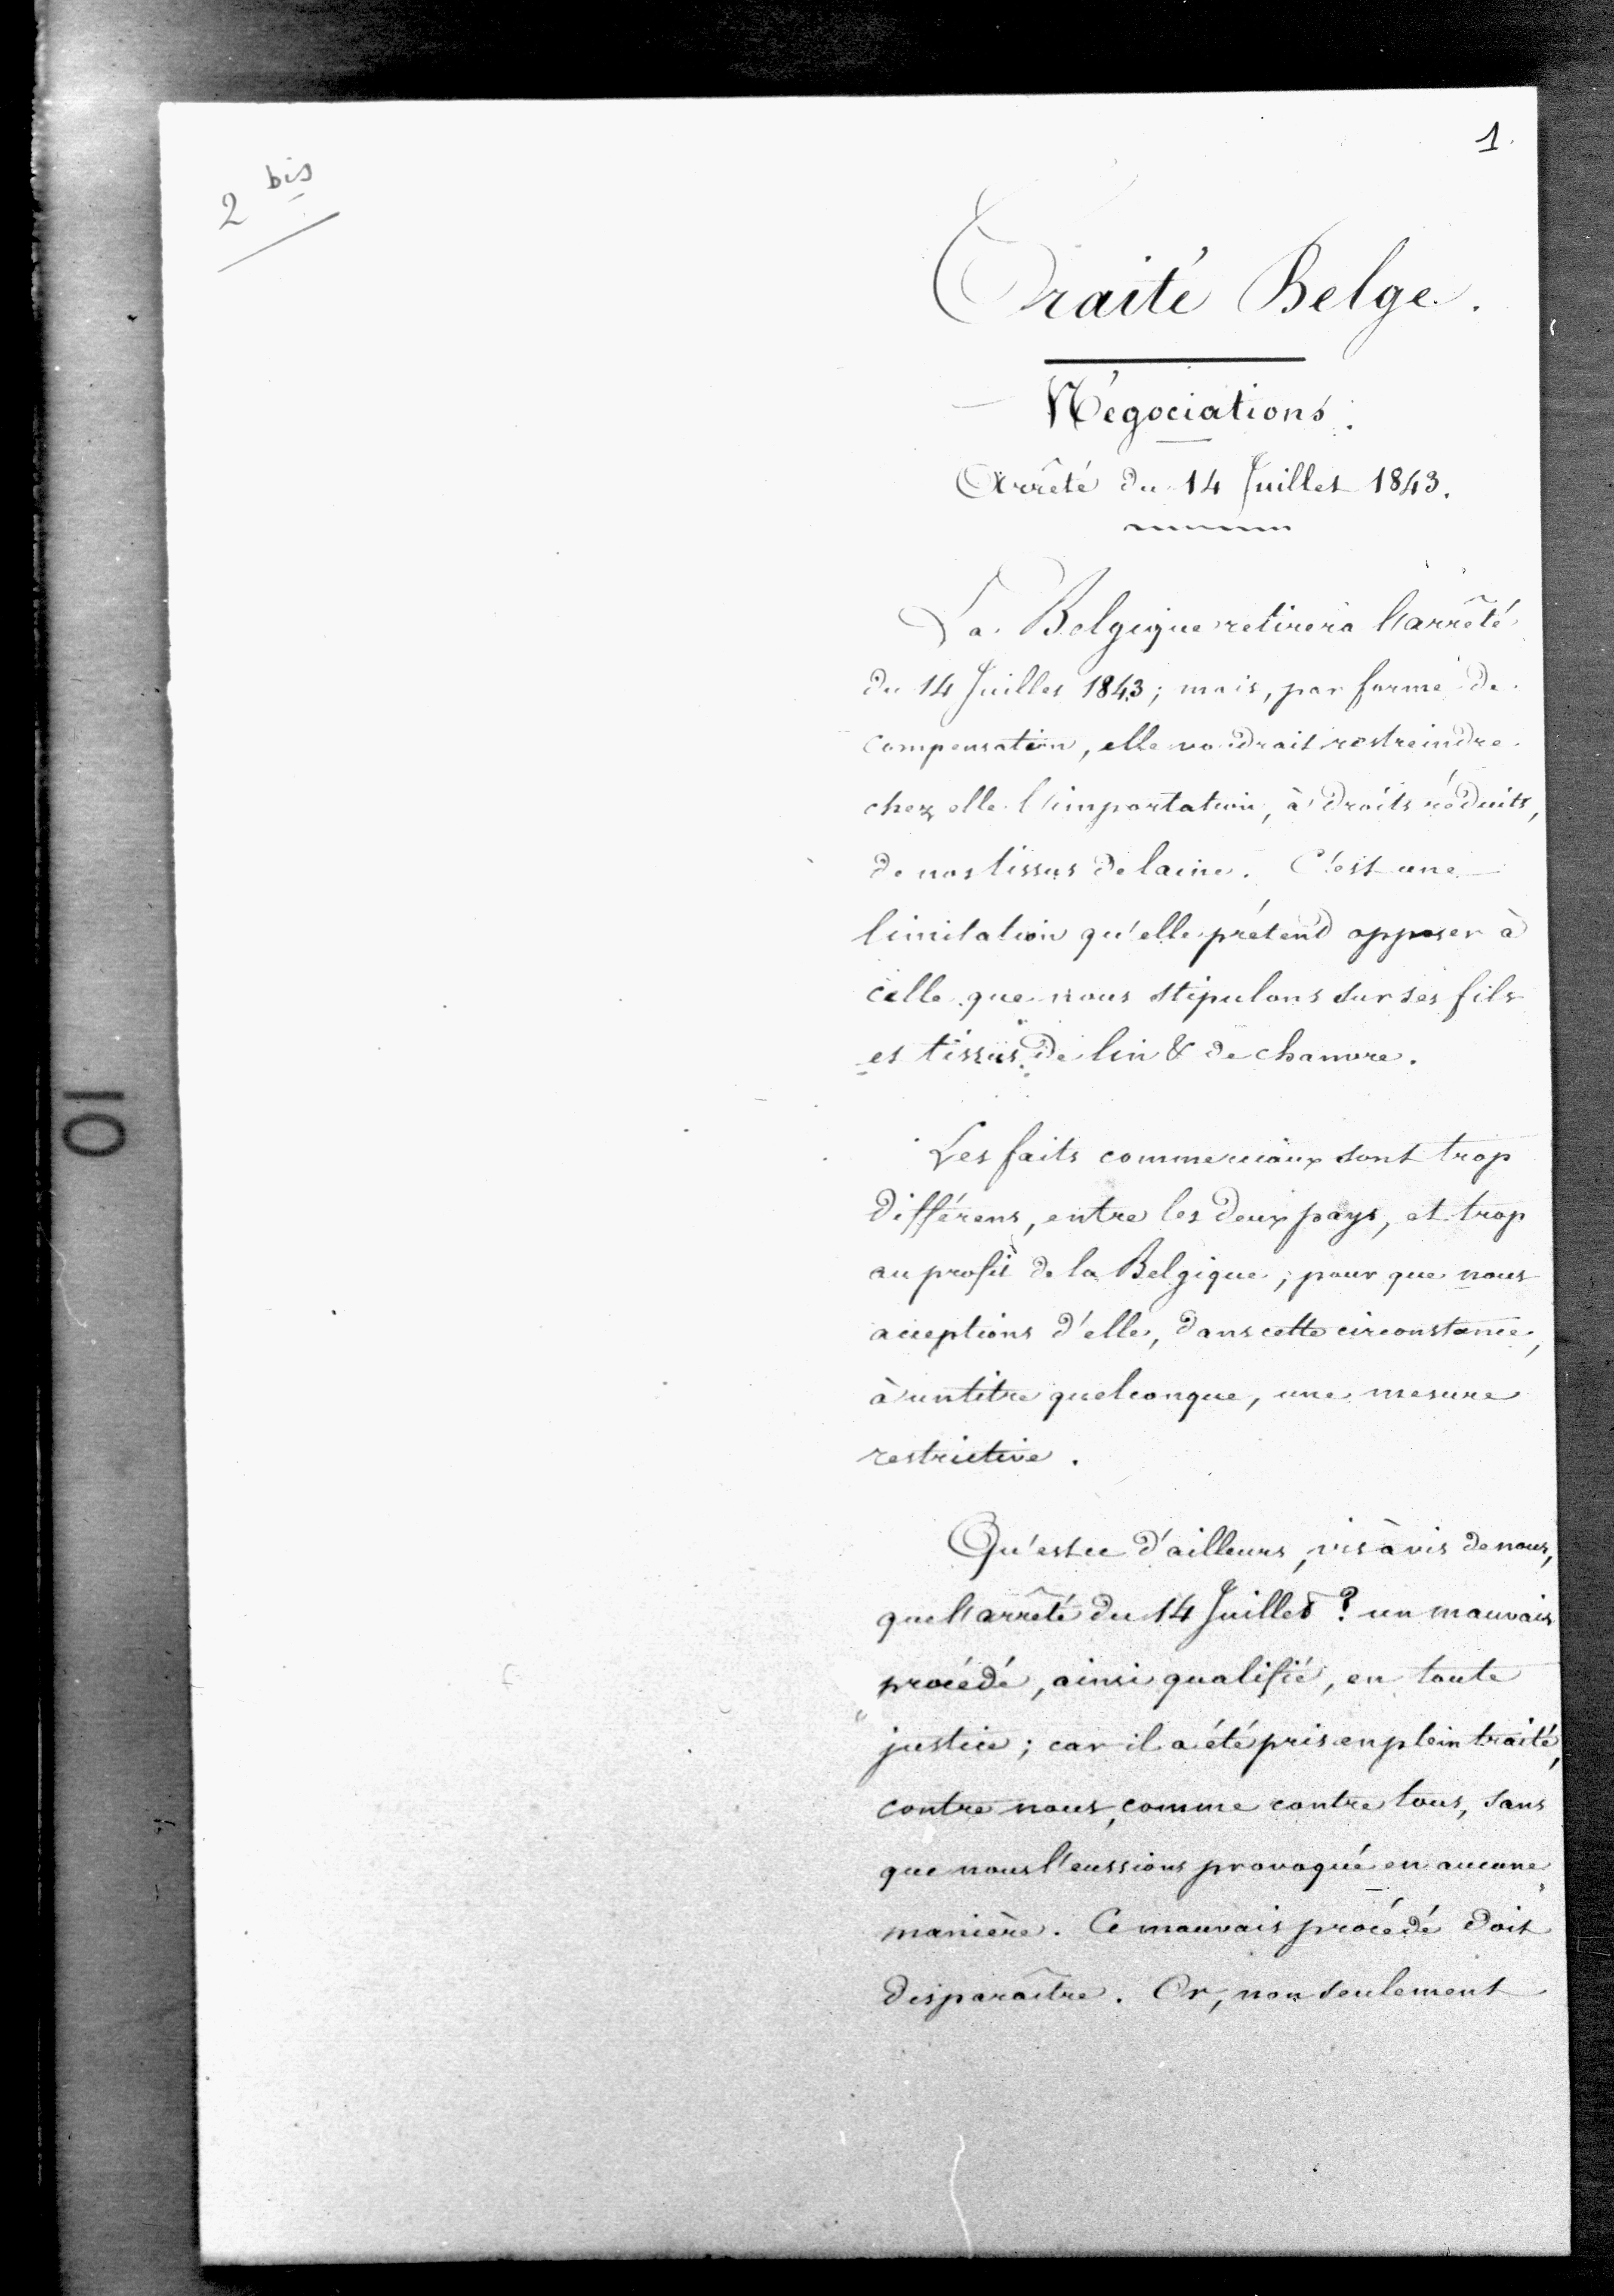 1.
2 bis
Traité Belge.
Négociations.
Arrêté du 14 Juillet 1843.
La Belgique retirera l'arrêté
du 14 Juillet 1843; mais, par forme de
compensation, elle voudrait restreindre
chez elle l'importation, à droits réduits,
de nos tissus de laine. C'est une
limitation qu'elle prétend opposer à
celle que nous stipulons sur ses fils
et tissus de lin & de chanvre.
Les faits commerciaux sont trop
différens, entre les deux pays, et trop
au profit de la Belgique, pour que nous
acceptions d'elle, dans cette circonstance,
à un titre quelconque, une mesure
restrictive.
Qu'est ce d'ailleurs, vis à vis de nous,
que l'arrêté du 14 Juillet ? un mauvais
procédé, ainsi qualifié, en toute
justice; car il a été pris en plein traité,
contre nous, comme contre tous, sans
que nous l'eussions provoqué en aucune
manière. Ce mauvais procédé doit
disparaître. Or, non seulement
10